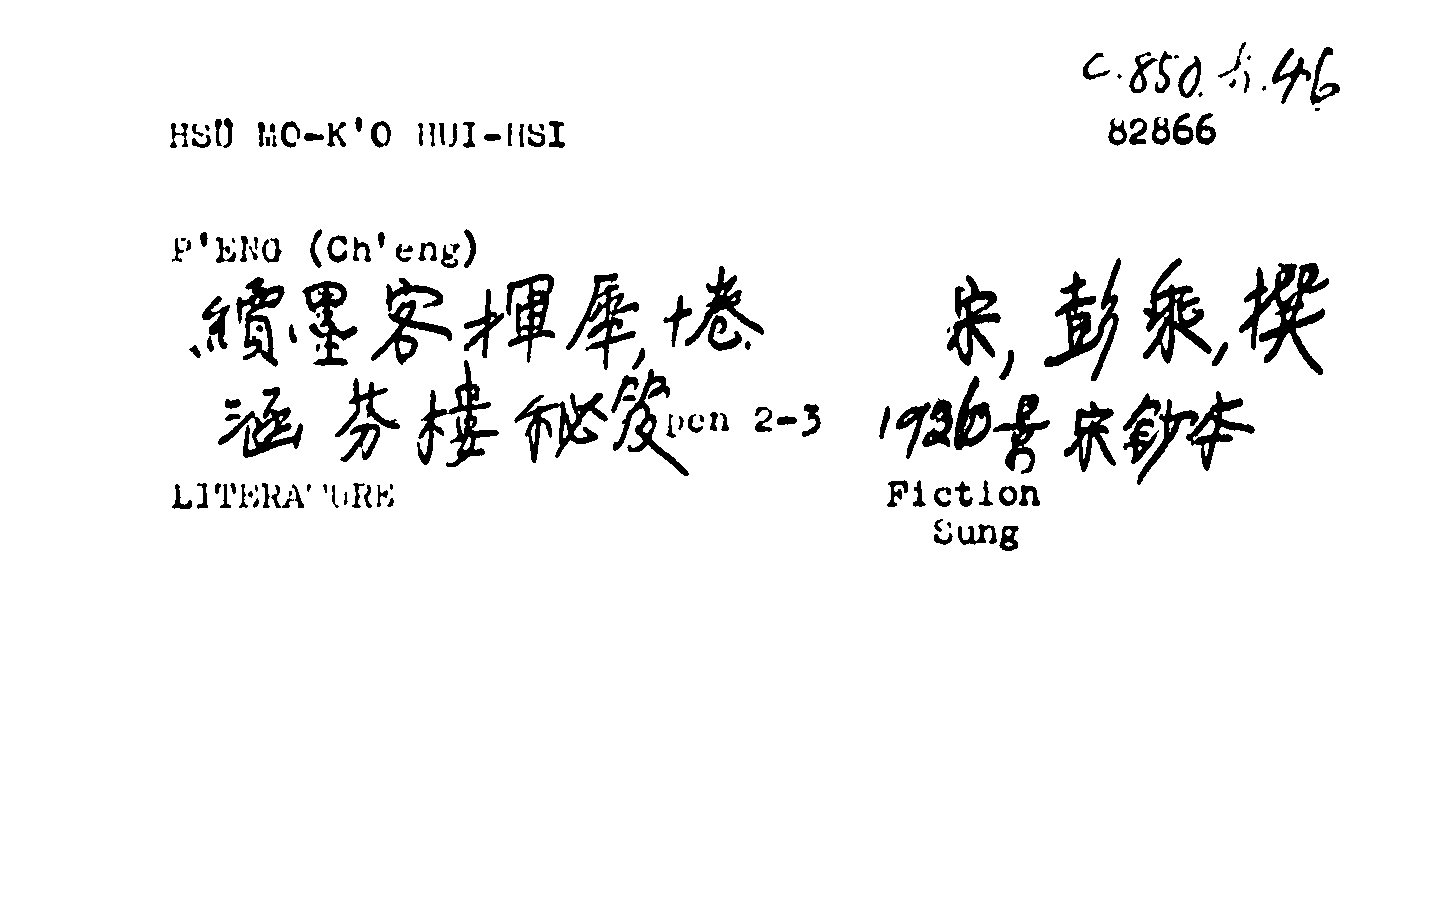 C.850.  .46
HSÜ MO-K'O HUI-HSI 82866
P'ENG (Ch'eng)
續墨客揮犀,十卷 宋,彭乘,撰
涵芬樓秘笈 pen 2-3 景宋鈔本
LITERATURE Fiction
Sung